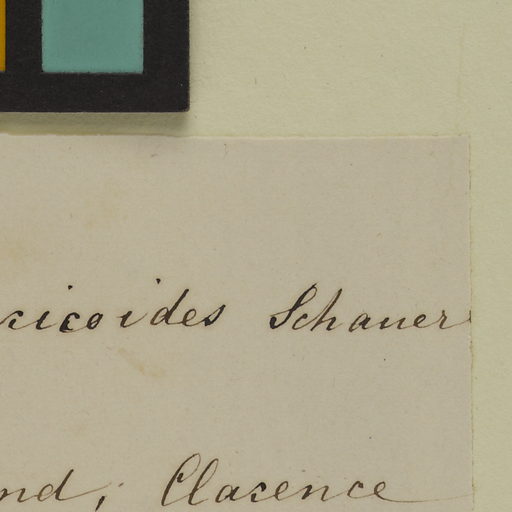 ricoides Schauer
nd, Clarence